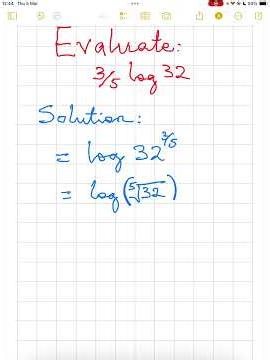 12:44 Thu 6 Mar
Evaluate:
3/5 log 32
Solution:
= log 32^3/5
= log(⁵√32)